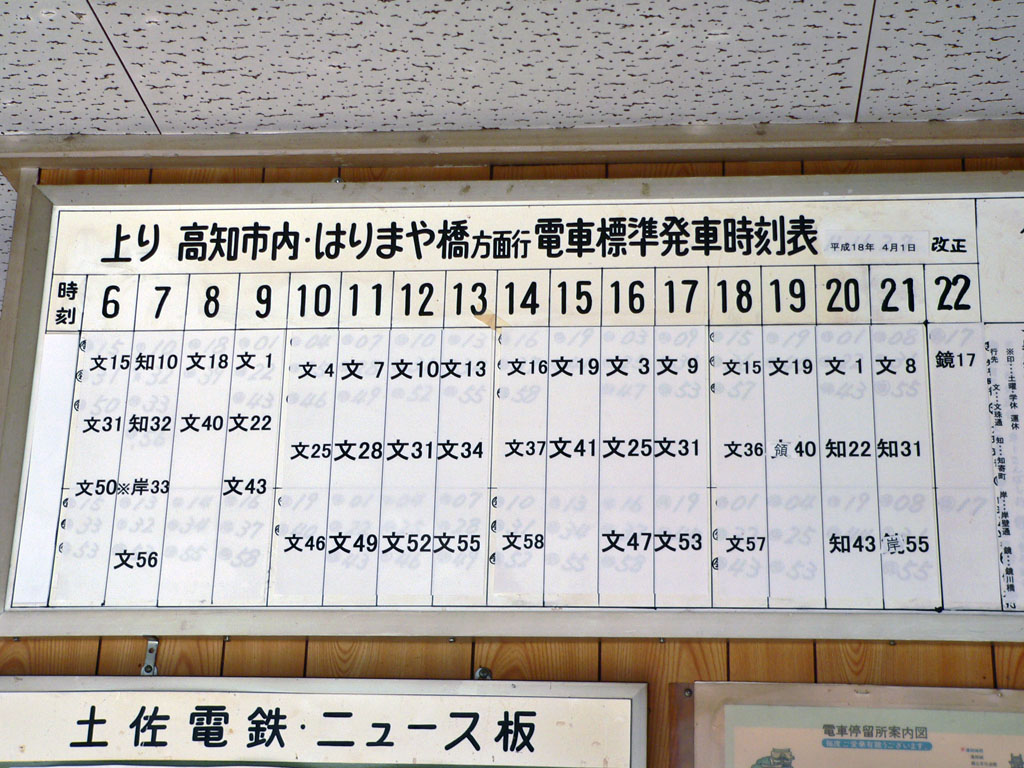 上り 高知市内・はりまや橋方面行 電車標準発車時刻表 平成18年 4月1日 改正
時刻 6 7 8 9 10 11 12 13 14 15 16 17 18 19 20 21 22
文15 知10 文18 文 1 文 4 文 7 文10 文13 文16 文19 文 3 文 9 文15 文19 文 1 文 8 鏡17
文31 知32 文40 文22 文25 文28 文31 文34 文37 文41 文25 文31 文36 領40 知22 知31
文50 ※岸33 文43
文56 文46 文49 文52 文55 文58 文47 文53 文57 知43 岸55
※印…土曜・学休 運休
行先 文…文珠通 知…知寄町 岸…岸壁通 鏡…鏡川橋
土佐電鉄・ニュース板
電車停留所案内図
毎度ご乗車有難うございます